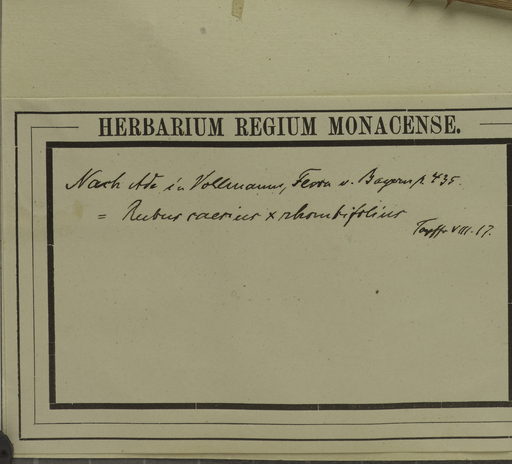 HERBARIUM REGIUM MONACENSE.
Nach Ade in Vollmann, Flora v. Bayern p. 435.
= Rubus caesius x rhombifolius
VIII. 17.